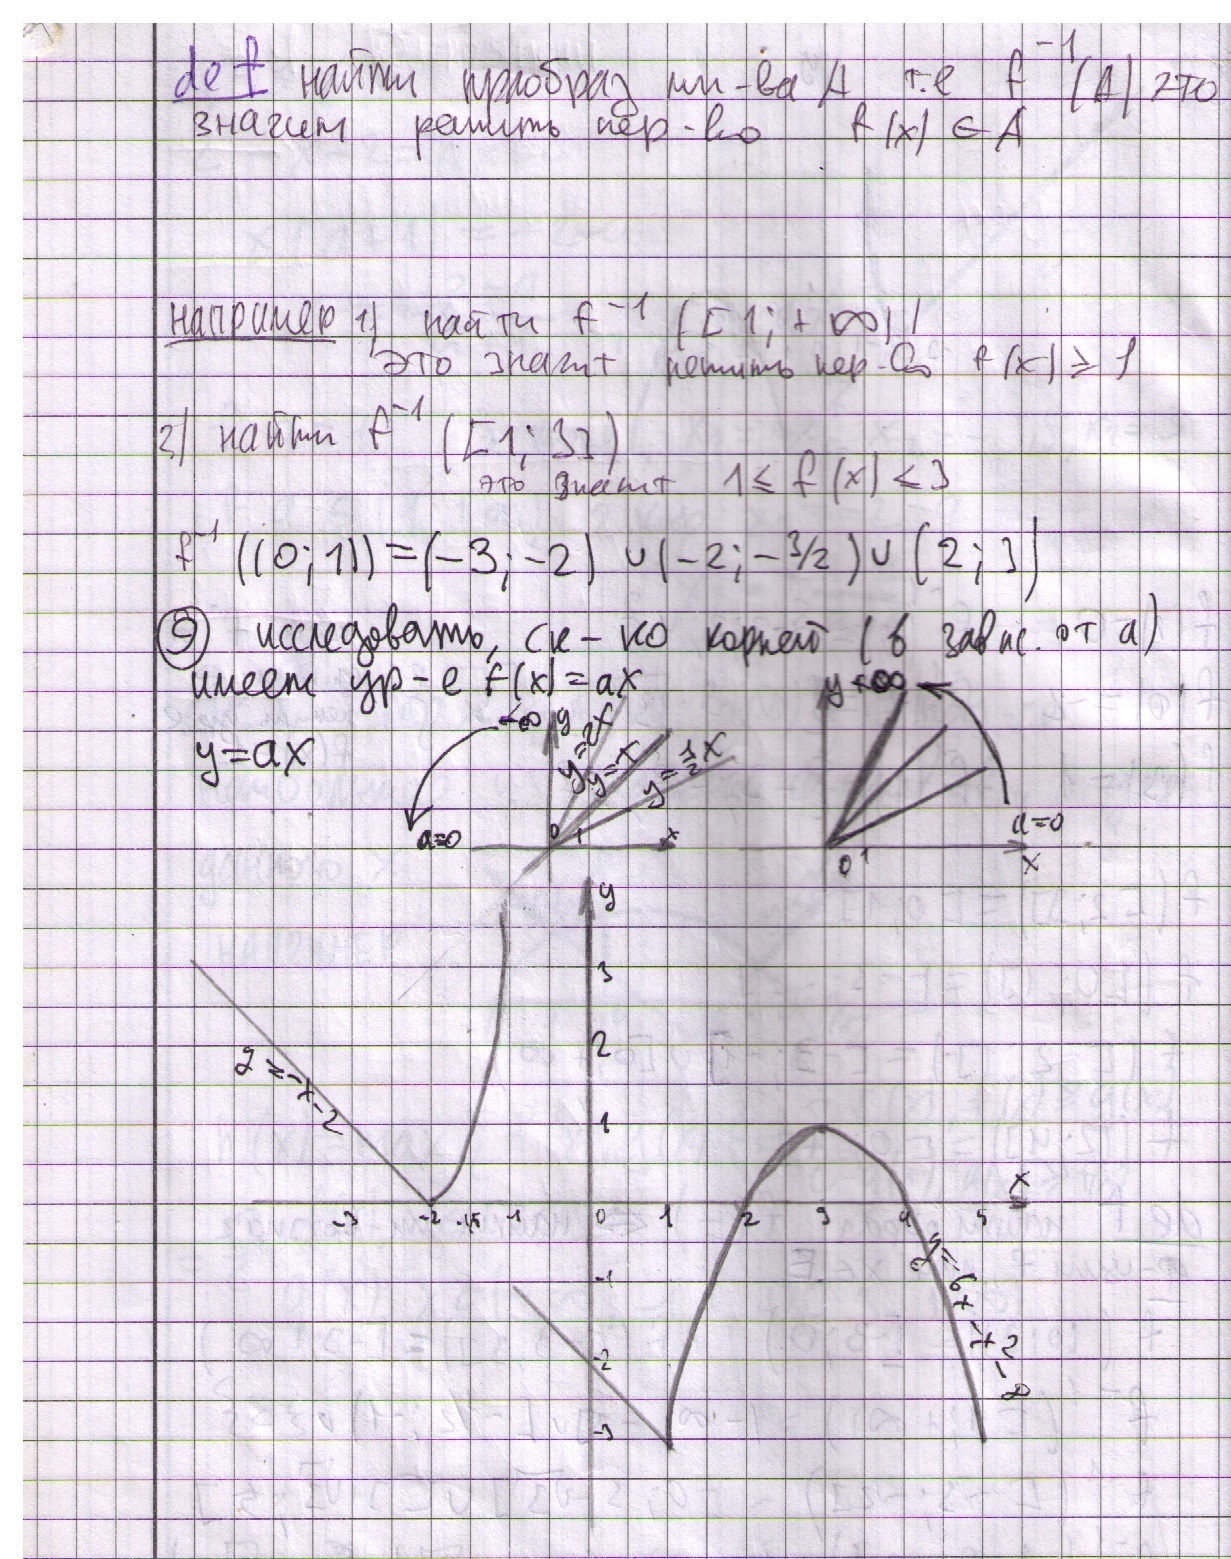 def найти прообраз мн-ва A т.е f⁻¹(A) это
значит решить нер-во f(x) ∈ A
например 1) найти f⁻¹([1; +∞))
это значит решить нер-во f(x) ≥ 1
2) найти f⁻¹([1; 3])
это значит 1 ≤ f(x) ≤ 3
f⁻¹((0; 1)) = (-3; -2) ∪ (-2; -3/2) ∪ (2; 3)
9 исследовать, ск-ко корней (в завис. от a)
имеет ур-е f(x) = ax
y = ax
-∞ y y=2x y=x y=½x
a=0 0 1 x
y +∞
a=0
0 1 x
y
3
2
y=-x-2
1
x
-3 -2 -1,5 -1 0 1 2 3 4 5
-1
y=6x-x²-8
-2
-3